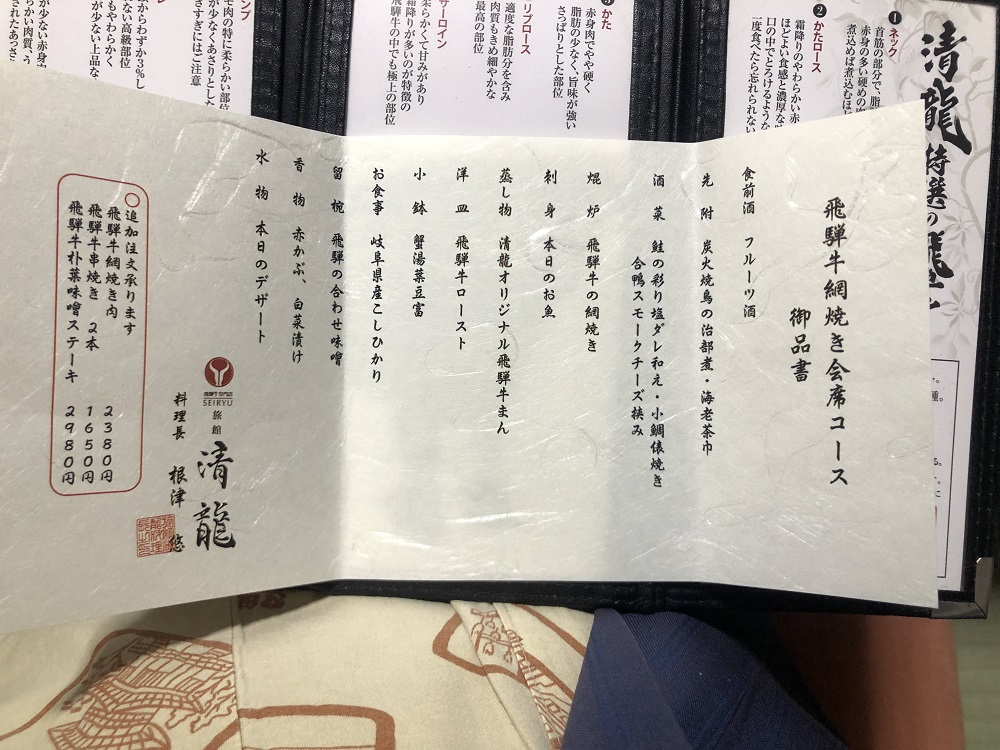 飛騨牛網焼き会席コース
御品書
食前酒 フルーツ酒
先附 炭火焼鳥の治部煮・海老茶巾
酒菜 鮭の彩り塩ダレ和え・小鯛俵焼き
合鴨スモークチーズ挟み
焜炉 飛騨牛の網焼き
刺身 本日のお魚
蒸し物 清龍オリジナル飛騨牛まん
洋皿 飛騨牛ロースト
小鉢 蟹湯葉豆富
お食事 岐阜県産こしひかり
留椀 飛騨の合わせ味噌
香物 赤かぶ、白菜漬け
水物 本日のデザート
SEIRYU
旅館
清龍
料理長 根津 悠
〇追加注文承ります
飛騨牛網焼き肉 2380円
飛騨牛串焼き 2本 1650円
飛騨牛朴葉味噌ステーキ 2980円
清龍特選の飛
1 ネック
首筋の部分で、脂
赤身の多い硬めの
煮込めば煮込むほ
2 かたロース
霜降りのやわらかい赤
ほどよい食感と濃厚な
口の中でとろけるような
一度食べたら忘れられない
3 かた
赤身肉でやや硬く
脂肪の少なく、旨味が強い
さっぱりとした部位
リブロース
適度な脂肪分を含み
肉質もきめ細やかな
最高の部位
サーロイン
柔らかくて甘みがあり
霜降りが多いのが特徴の
飛騨牛の中でも極上の部位